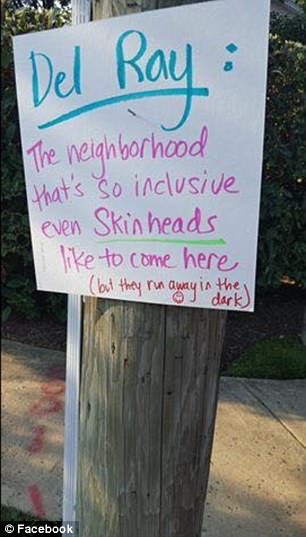 Del Ray :
The neighborhood
that's so inclusive
even Skinheads
like to come here
(but they run away in the
dark)
© Facebook